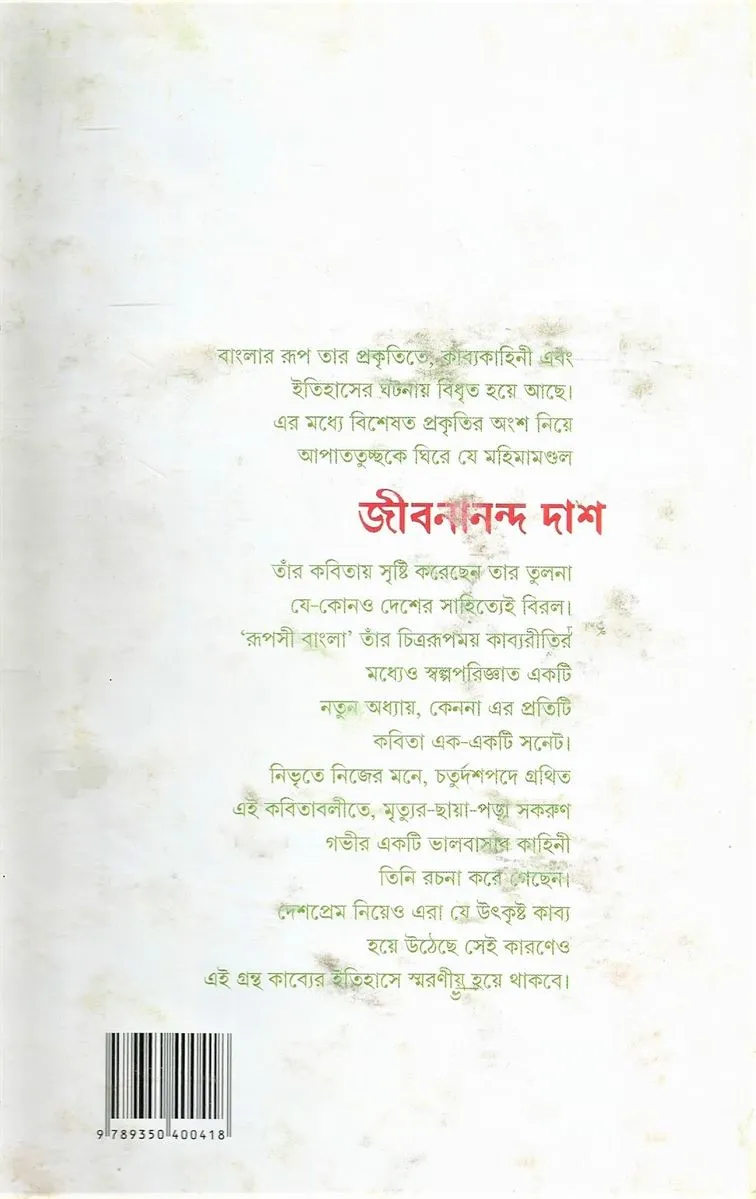 বাংলার রূপ তার প্রকৃতিতে, কাব্যকাহিনী এবং
ইতিহাসের ঘটনায় বিধৃত হয়ে আছে।
এর মধ্যে বিশেষত প্রকৃতির অংশ নিয়ে
আপাততুচ্ছকে ঘিরে যে মহিমামণ্ডল
জীবনানন্দ দাশ
তাঁর কবিতায় সৃষ্টি করেছেন তার তুলনা
যে-কোনও দেশের সাহিত্যেই বিরল।
‘রূপসী বাংলা’ তাঁর চিত্ররূপময় কাব্যরীতির
মধ্যেও স্বল্পপরিজ্ঞাত একটি
নতুন অধ্যায়, কেননা এর প্রতিটি
কবিতা এক-একটি সনেট।
নিভৃতে নিজের মনে, চতুর্দশপদে গ্রথিত
এই কবিতাবলীতে, মৃত্যুর-ছায়া-পড়া সকরুণ
গভীর একটি ভালবাসার কাহিনী
তিনি রচনা করে গেছেন।
দেশপ্রেম নিয়েও এরা যে উৎকৃষ্ট কাব্য
হয়ে উঠেছে সেই কারণেও
এই গ্রন্থ কাব্যের ইতিহাসে স্মরণীয় হয়ে থাকবে।
9 789350 400418